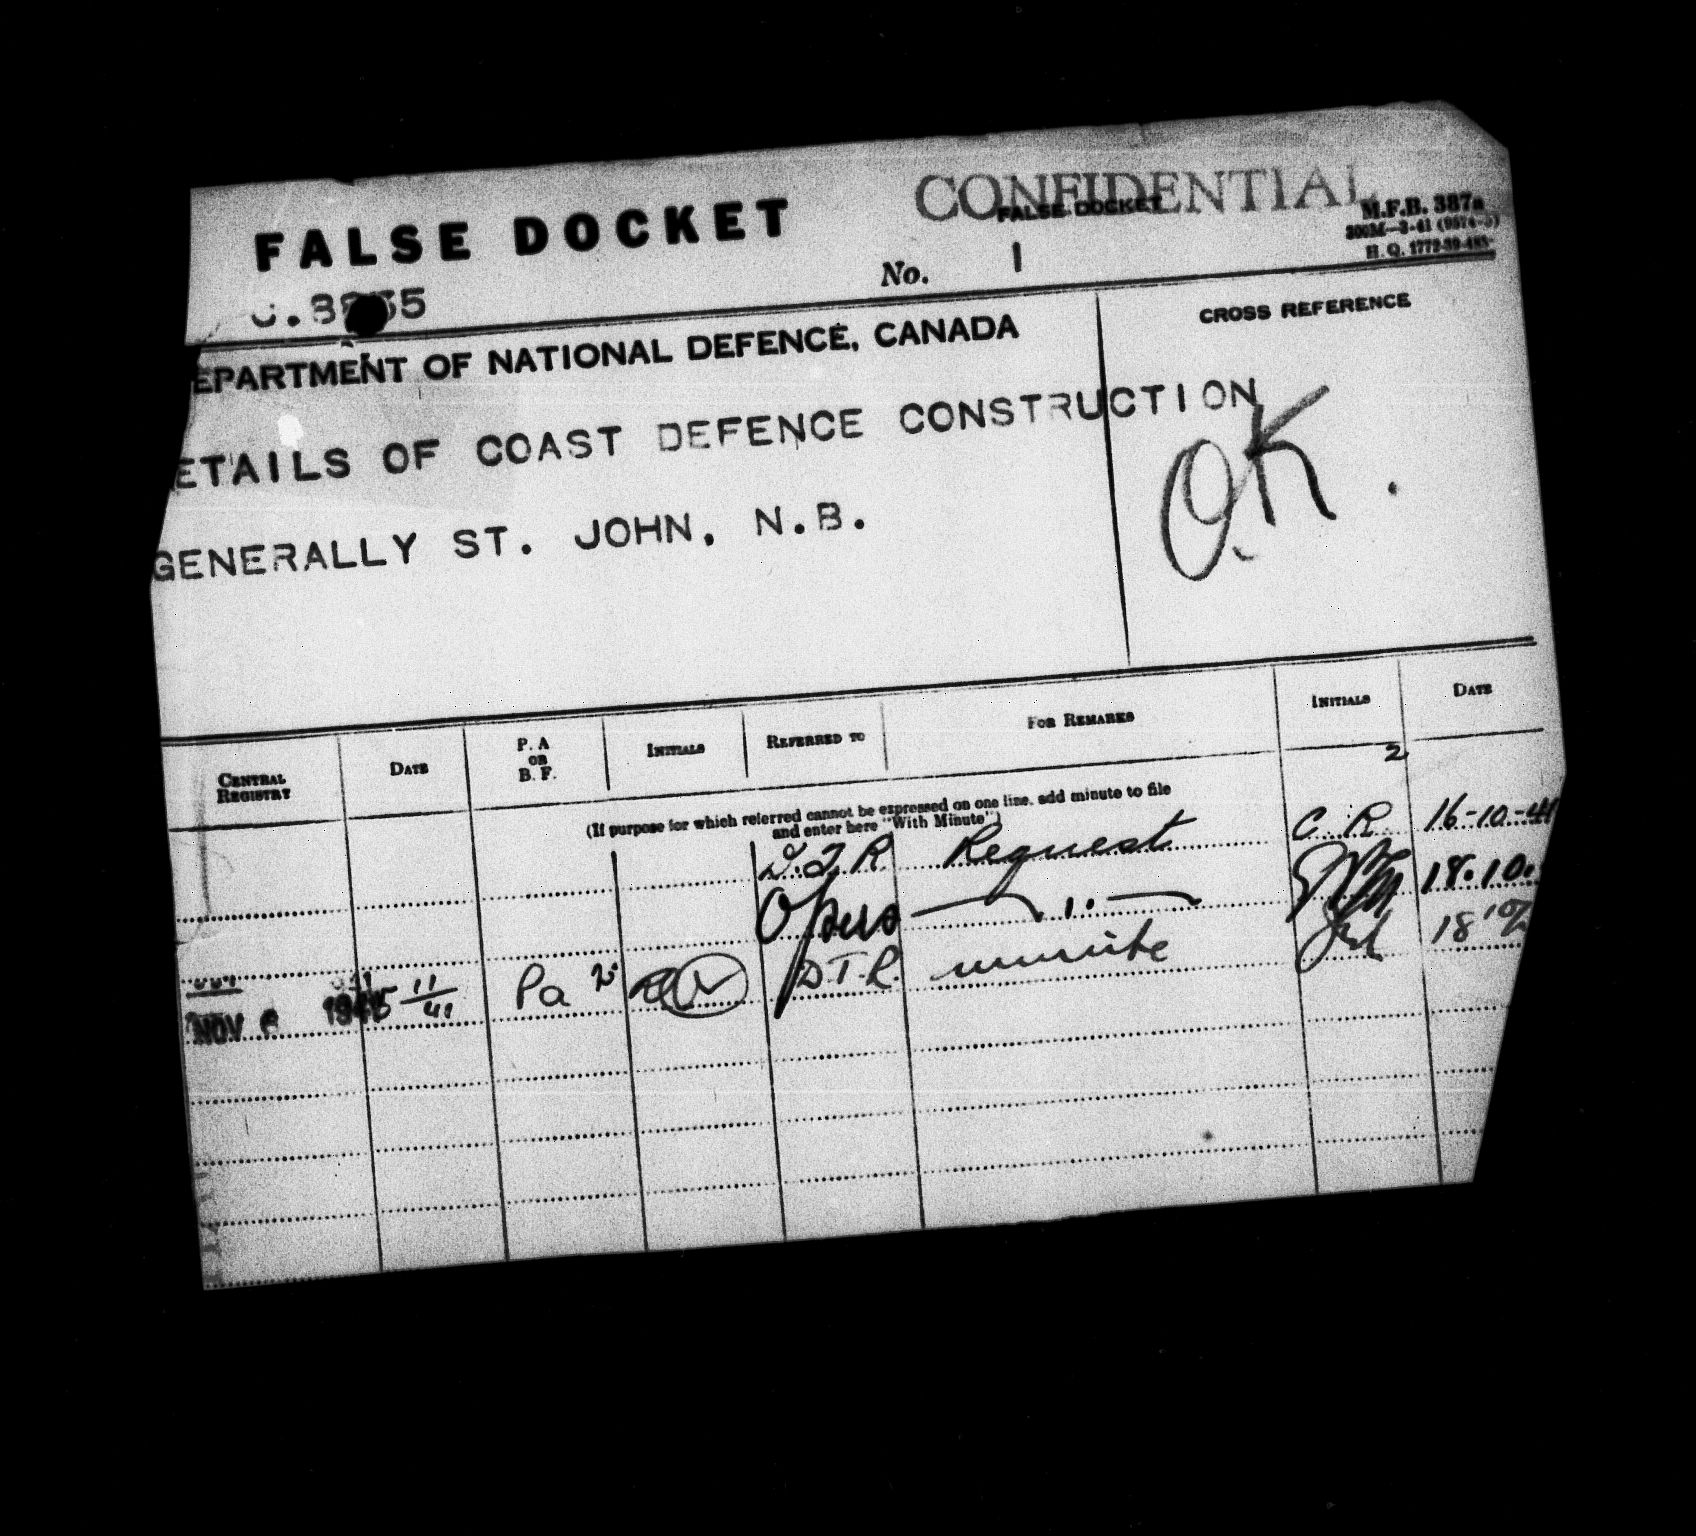 CONFIDENTIAL
FALSE DOCKET
FALSE DOCKET
M.F.B. 387a
No. 1
H.Q. 1772-39-
EPARTMENT OF NATIONAL DEFENCE, CANADA
CROSS REFERENCE
ETAILS OF COAST DEFENCE CONSTRUCTION
OK.
GENERALLY ST. JOHN, N.B.
CENTRAL REGISTRY DATE P. A OR B. F. INITIALS REFERRED TO FOR REMARKS INITIALS DATE
2
(If purpose for which referred cannot be expressed on one line, add minute to file
and enter here "With Minute")
Request C.R. 16-10-41
18.10.
D.T.R. minute 18
11/41 Pa
NOV